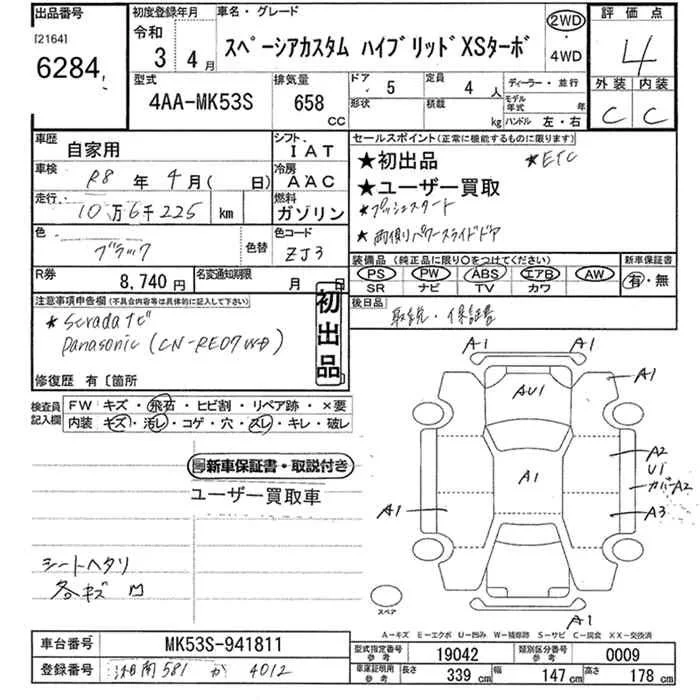 出品番号
[2164]
6284
初度登録年月
令和
3年4月
車名・グレード
スペーシアカスタム ハイブリッドXSターボ
2WD
・
4WD
評価点
4
外装 内装
C C
型式
4AA-MK53S
排気量
658
CC
ドア
5
定員
4人
形状
積載
kg
ディーラー・並行
モデル年式 年
ハンドル 左・右
車歴
自家用
シフト
IAT
車検
R8年4月( 日)
冷房
AAC
走行
10万6千225 km
燃料
ガソリン
色
ブラック
色替
色コード
ZJ3
R券
8,740円
名変通知期限
月 日
セールスポイント(正常に機能するものに限ります)
★初出品 ★ETC
★ユーザー買取
★プッシュスタート
★両側パワースライドドア
装備品(純正品に限り○をつけてください)
PS PW ABS エアB AW
SR ナビ TV カワ
新車保証書
有・無
後日品
取説・保証書
注意事項申告欄(不具合内容等は具体的に記入して下さい)
★SDナビ
Panasonic(CN-RE07WD)
初出品
修復歴 有〔箇所
検査員
記入欄
FW キズ・飛石・ヒビ割・リペア跡・×要
内装 キズ・汚レ・コゲ・穴・スレ・キレ・破レ
新車保証書・取説付き
ユーザー買取車
シートヘタリ
各キズ凹
A1 A1
A1
AU1
A1
A2
U1
カバーA2
A3
A1
A1
スペア
A−キズ E−エクボ U−凹み W−補修跡 S−サビ C−腐食 XX−交換済
車台番号
MK53S-941811
登録番号
湘南581 か 4012
型式指定番号
参考
19042
類別区分番号
参考
0009
車庫証明用
参考
長さ
339cm
幅
147cm
高さ
178cm